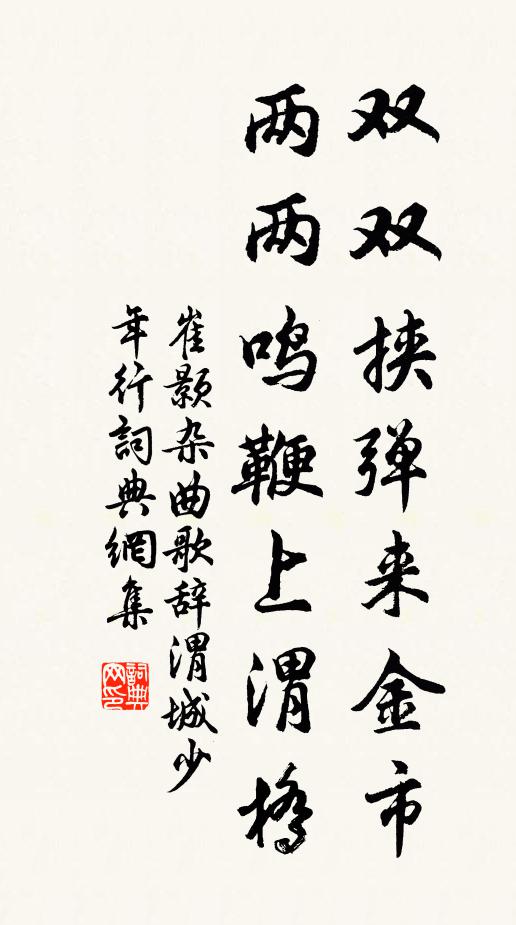 双双挟弹来金市
两两鸣鞭上渭桥
崔颢杂曲歌辞渭城少
年行詞典網集
詞典网印